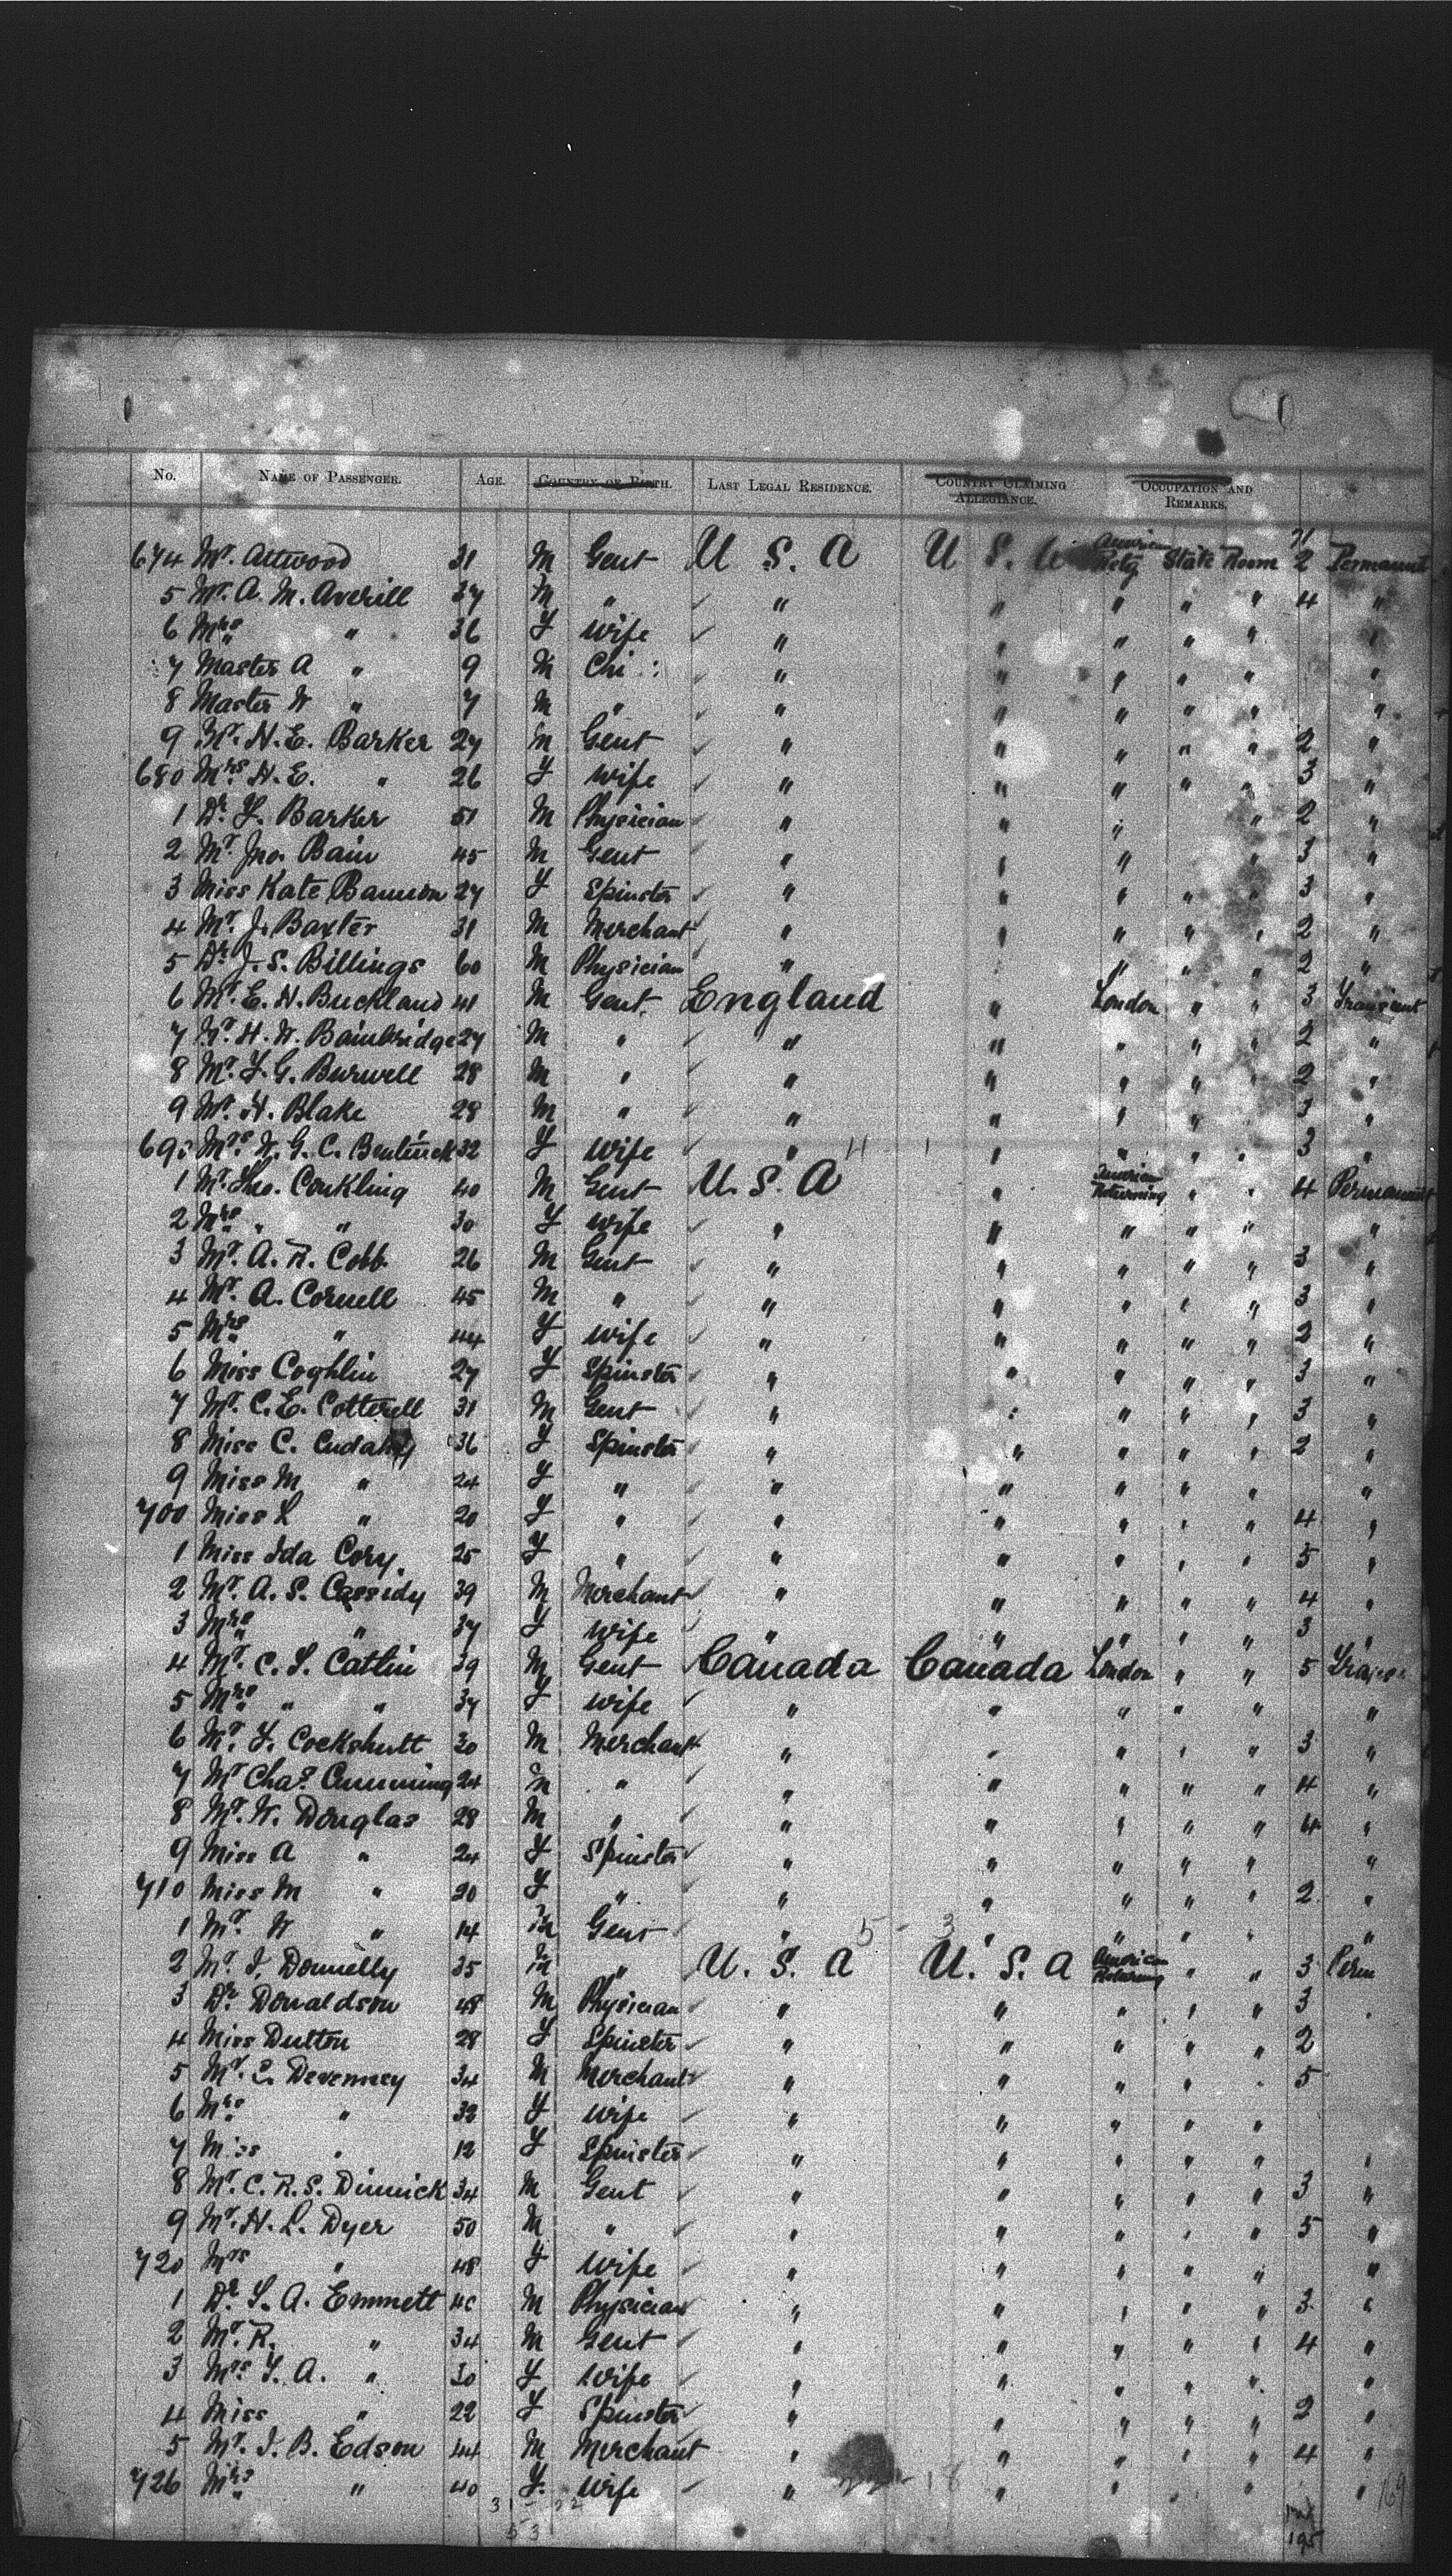 No. NAME OF PASSENGER. AGE. COUNTRY OF BIRTH. LAST LEGAL RESIDENCE. COUNTRY CLAIMING ALLEGIANCE. OCCUPATION AND REMARKS.
674 Mr. Attwood 31 M Gent U S. A U S. A American Retg State Room 2 Permanent
5 Mr. A. M. Averill 37 M " " " " " " 4 "
6 Mrs " 36 F Wife " " " " " "
7 Master A " 9 M Chi " " " " " "
8 Master W " 7 M " " " " " " "
9 Mr. H. E. Barker 27 M Gent " " " " " 2 "
680 Mrs H. E. " 26 F Wife " " " " " 3 "
1 Dr. F. Barker 51 M Physician " " " " 2 "
2 Mr. Jno. Bain 45 M Gent " " " " 3 "
3 Miss Kate Bannon 27 F Spinster " " " " " 3 "
4 Mr. J. Baxter 31 M Merchant " " " " " 2 "
5 Dr. J. S. Billings 60 M Physician " " " " 2 "
6 Mr. E. H. Buckland 41 M Gent. England " London " " 3 Transient
7 Mr. H. W. Bainbridge 27 M " " " " " " 2 "
8 Mr. F. G. Burwell 28 M " " " " " " 2 "
9 Mr. H. Blake 28 M " " " " " 3 "
690 Mrs. W. G. C. Bentinck 32 F Wife " " " " " 3 "
1 Mr. Jno. Conkling 40 M Gent U. S. A " American Returning " " 4 Permanent
2 Mrs " " 30 F Wife " " " " " "
3 Mr. A. R. Cobb 26 M Gent " " " " " 3 "
4 Mr. A. Cornell 45 M " " " " " " 3 "
5 Mrs " 44 F Wife " " " " " 2 "
6 Miss Coghlin 27 F Spinster " " " " " 3 "
7 Mr. C. E. Cotterell 31 M Gent " " " " " 3 "
8 Miss C. Cudahy 36 F Spinster " " " " " 2 "
9 Miss M " 24 F " " " " " " "
700 Miss L " 20 F " " " " " " 4 "
1 Miss Ida Cory 25 F " " " " " " 5 "
2 Mr. A. S. Cassidy 39 M Merchant " " " " " 4 "
3 Mrs " 37 F Wife " " " " " 3 "
4 Mr. C. S. Catlin 39 M Gent Canada Canada London " " 5
5 Mrs " " 37 F Wife " " " " " "
6 Mr. F. Cockshutt 30 M Merchant " " " " " 3 "
7 Mr Chas. Cumming 24 M " " " " " " 4 "
8 Mr. W. Douglas 28 M " " " " " " 4 "
9 Miss A " 24 F Spinster " " " " " "
710 Miss M " 20 F " " " " " " 2 "
1 Mr. W " 14 M Gent " 5 - 3 " " " " "
2 Mr. J. Donnelly 35 M " U. S. A U. S. A American Returning " " 3 Perm
3 Dr. Donaldson 48 M Physician " " " " " 3 "
4 Miss Dutton 28 F Spinster " " " " " 2
5 Mr. C. Devenney 34 M Merchant " " " " " 5
6 Mrs " 32 F Wife " " " " "
7 Miss " 12 F Spinster " " " " " "
8 Mr. C. R. S. Dinnick 34 M Gent " " " " " 3 "
9 Mr. H. L. Dyer 50 M " " " " " " 5 "
720 Mrs " 48 F Wife " " " " " "
1 Dr. T. A. Emmett 40 M Physician " " " " " 3 "
2 Mr. R. " 34 M Gent " " " " " 4 "
3 Mrs T. A. " 30 F Wife " " " " " "
4 Miss " 22 F Spinster " " " " " 2 "
5 Mr. J. B. Edson 44 M Merchant " " " " " 4 "
726 Mrs " 40 F Wife " " " " " " 169
31 - 22
53